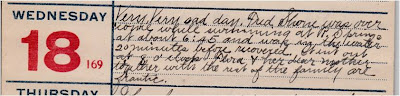 WEDNESDAY
18 169
Very, Very sad day. Fred was over
come while swimming at W. Springs
at about 6:45 and was in the water
20 minutes before recovered. I went out
at o'clock. & her dear mother
with the rest of the family are
frantic.
THURSDAY